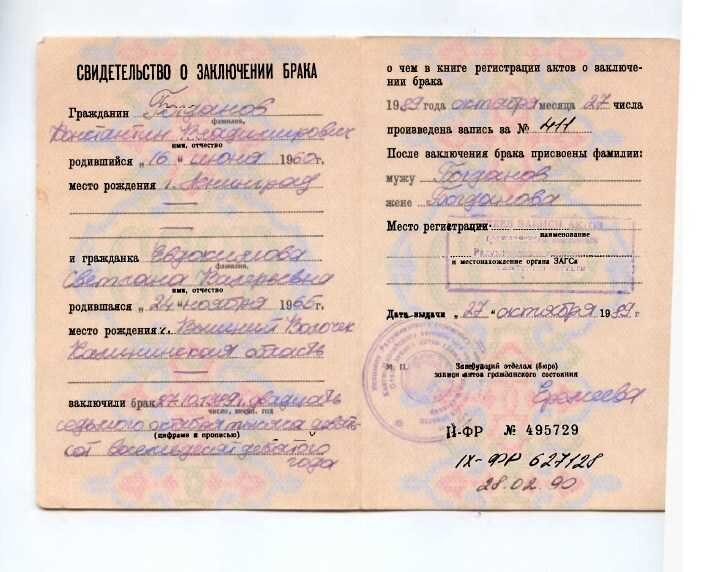 СВИДЕТЕЛЬСТВО О ЗАКЛЮЧЕНИИ БРАКА
Гражданин Богданов
фамилия,
Константин Владимирович
имя, отчество
родившийся „16“ июня 1960г.
место рождения г. Ленинград
и гражданка Евдокимова
фамилия,
Светлана Валерьевна
имя, отчество
родившаяся „24“ ноября 1965г.
место рождения г. Вышний Волочек
Калининская область
заключили брак 27.10.1989г. двадцать
число, месяц, год
седьмого октября тысяча девять-
(цифрами и прописью)
сот восемьдесят девятого
года
о чем в книге регистрации актов о заключе-
нии брака
1989 года октября месяца 27 числа
произведена запись за № 411
После заключения брака присвоены фамилии:
мужу Богданов
жене Богданова
Место регистрации:
ОТДЕЛ ЗАПИСИ АКТОВ
наименование
и местонахождение органа ЗАГСа
Дата выдачи „27“ октября 1989г
М. П.
Заведующий отделом (бюро)
записи актов гражданского состояния
Еремеева
II-ФР № 495729
IX-ФР 627128
28.02.90